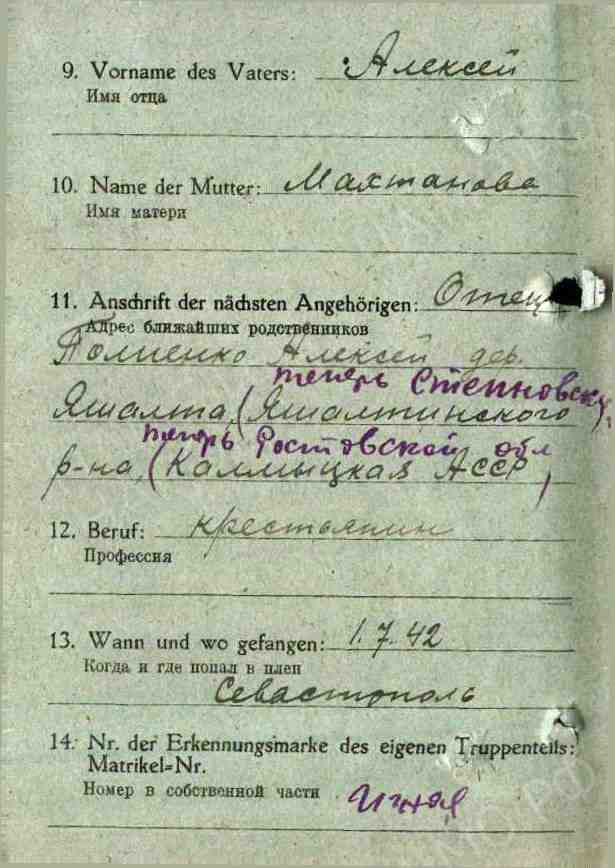 9. Vorname des Vaters: Алексей
Имя отца
10. Name der Mutter: Махтанова
Имя матери
11. Anschrift der nächsten Angehörigen: Отец
Адрес ближайших родственников
Алексей дер.
теперь Степновск
Яшалта, (Яшалтинского)
теперь Ростовской обл
р-на, (Калмыцкая АССР)
12. Beruf: крестьянин
Профессия
13. Wann und wo gefangen: 1.7.42
Когда и где попал в плен
Севастополь
14. Nr. der Erkennungsmarke des eigenen Truppenteils:
Matrikel=Nr.
Номер в собственной части